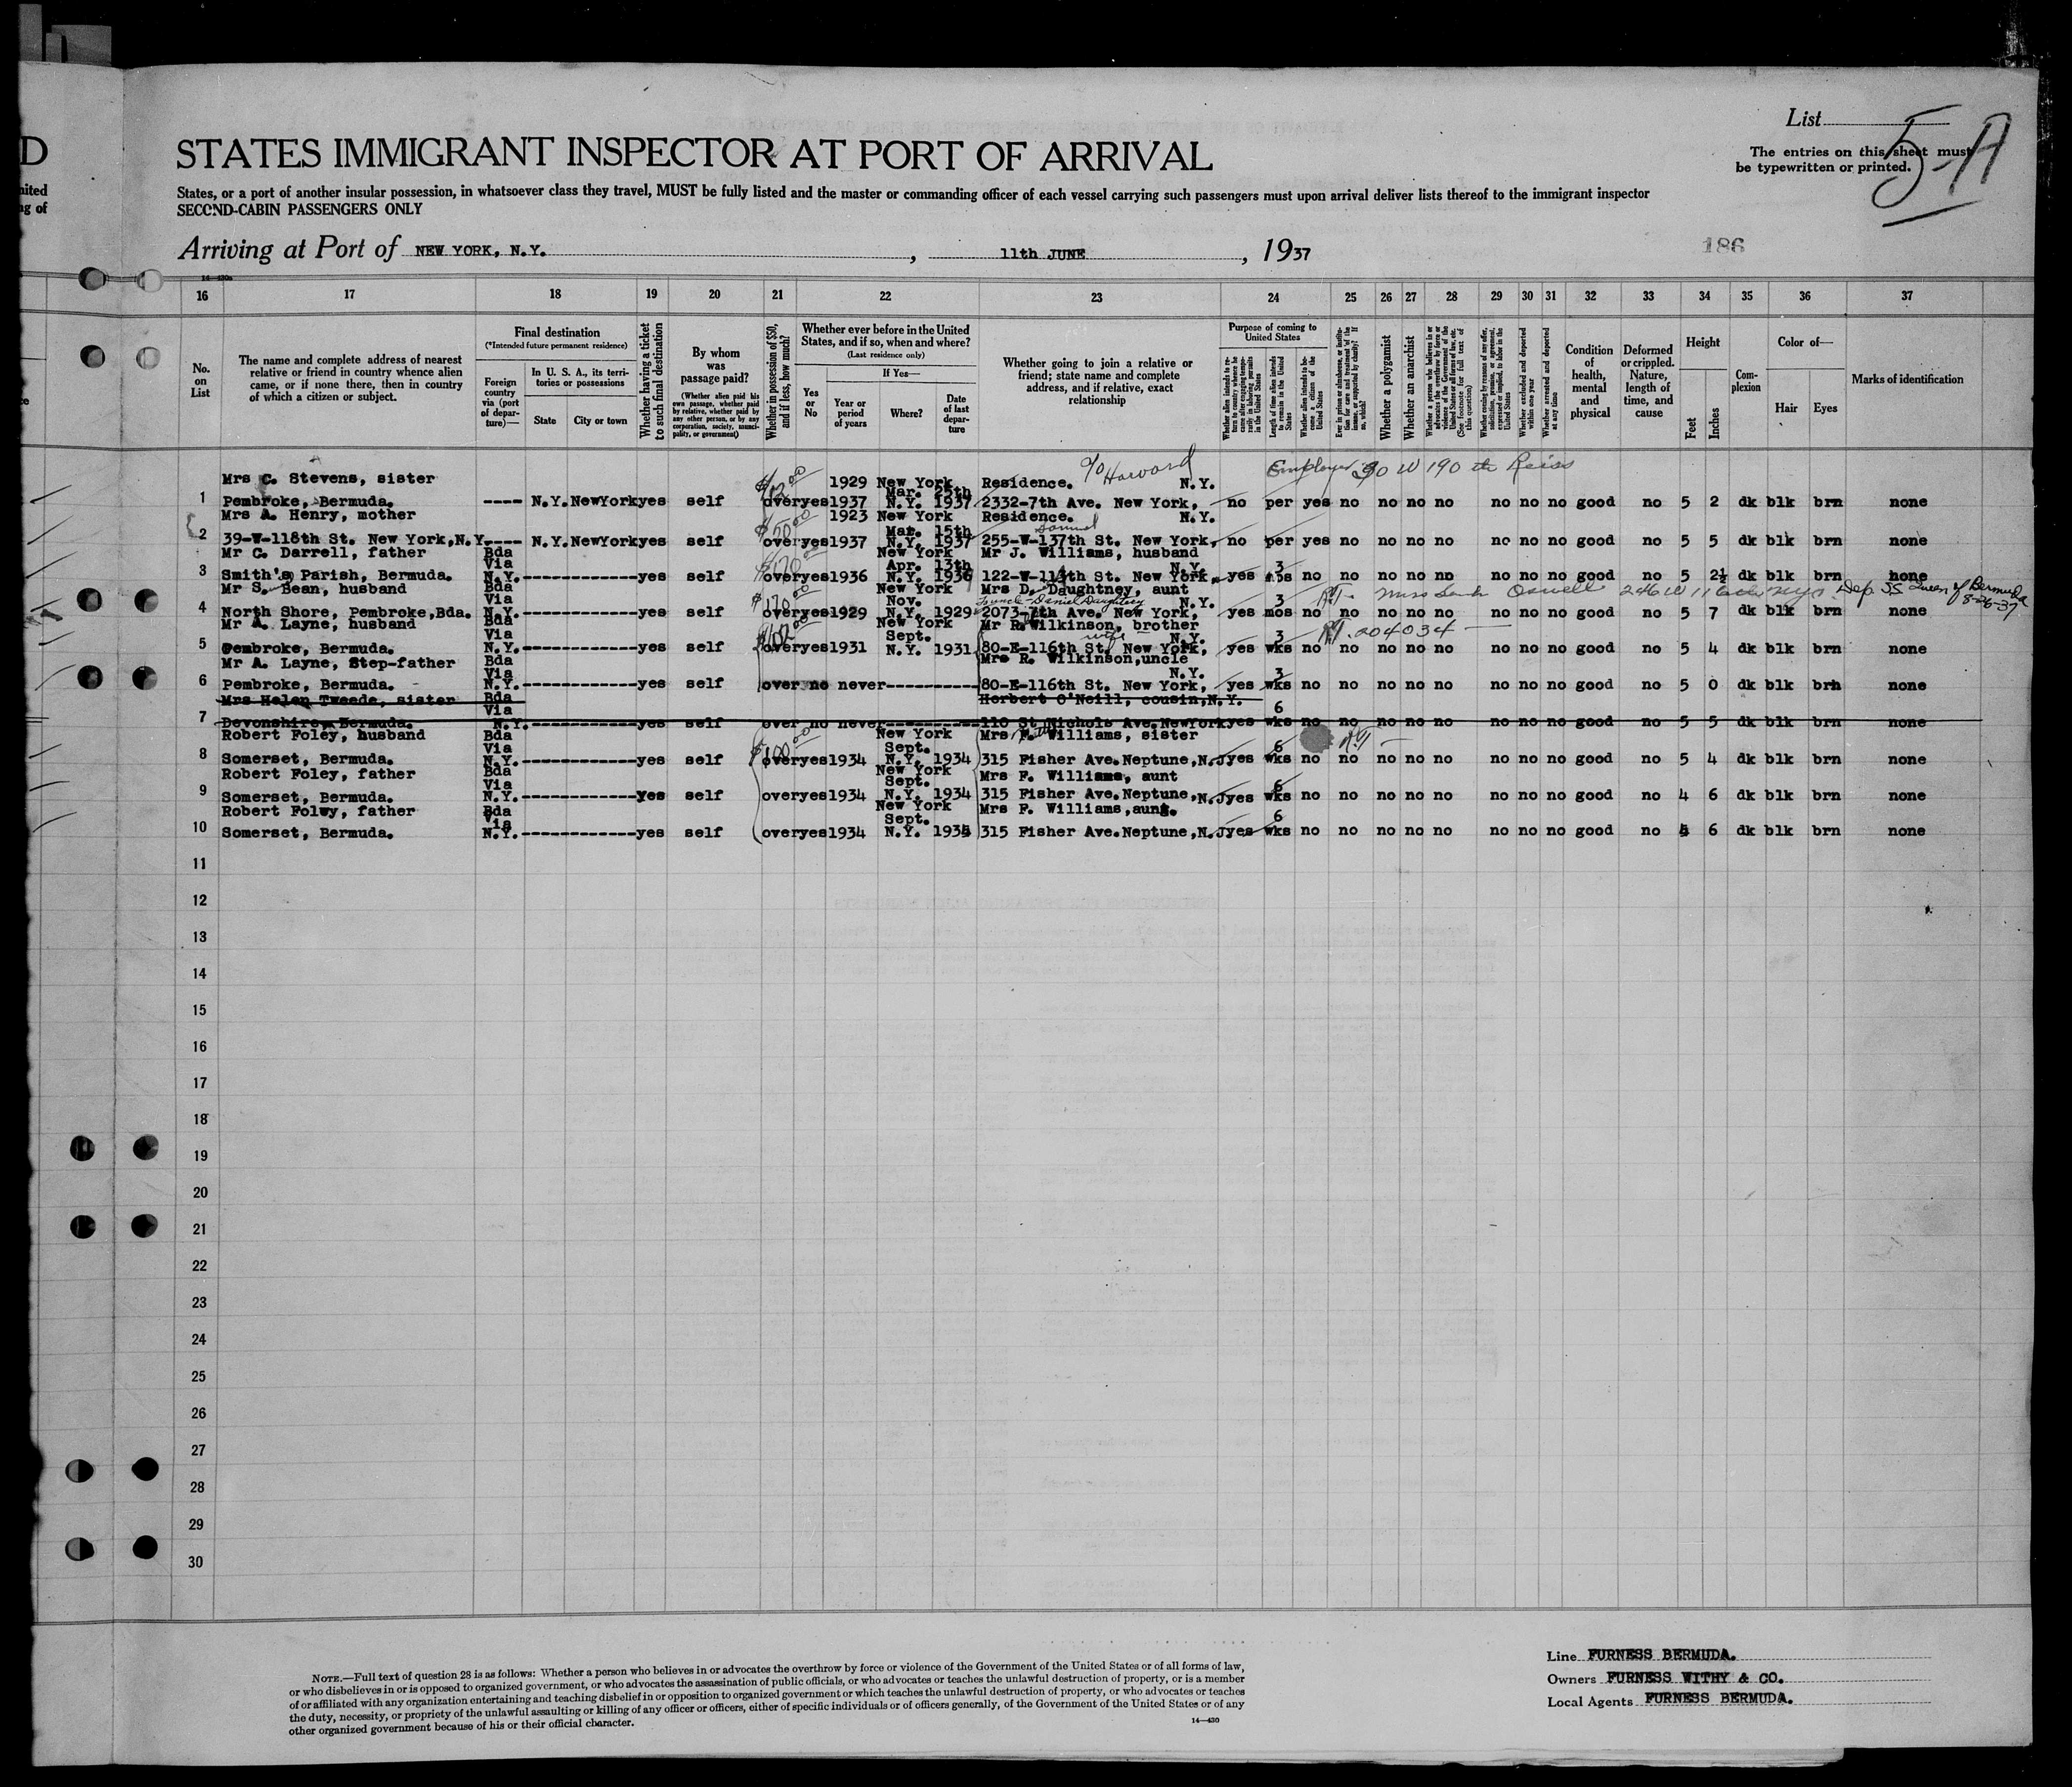 D
nited
ng of
List
5-A
The entries on this sheet must
be typewritten or printed.
STATES IMMIGRANT INSPECTOR AT PORT OF ARRIVAL
States, or a port of another insular possession, in whatsoever class they travel, MUST be fully listed and the master or commanding officer of each vessel carrying such passengers must upon arrival deliver lists thereof to the immigrant inspector
SECOND-CABIN PASSENGERS ONLY
Arriving at Port of NEW YORK, N.Y. , 11th JUNE , 1937
186
16 17 18 19 20 21 22 23 24 25 26 27 28 29 30 31 32 33 34 35 36 37
No. on List
The name and complete address of nearest relative or friend in country whence alien came, or if none there, then in country of which a citizen or subject.
Final destination
(*Intended future permanent residence)
Foreign country via (port of departure)—
In U. S. A., its territories or possessions
State City or town
Whether having a ticket to such final destination
By whom was passage paid?
(Whether alien paid his own passage, whether paid by relative, whether paid by any other person, or by any corporation, society, municipality, or government)
Whether in possession of $50, and if less, how much?
Whether ever before in the United States, and if so, when and where?
(Last residence only)
Yes or No
If Yes—
Year or period of years
Where?
Date of last departure
Whether going to join a relative or friend; state name and complete address, and if relative, exact relationship
Purpose of coming to United States
Length of time alien intends to remain in the United States
Whether alien intends to become a citizen of the United States
Whether a polygamist
Whether an anarchist
Whether excluded and deported within one year
Whether arrested and deported at any time
Condition of health, mental and physical
Deformed or crippled. Nature, length of time, and cause
Height
Feet Inches
Complexion
Color of—
Hair Eyes
Marks of identification
c/o Howard
Employer 30 W 190 th Reiss
Mrs C. Stevens, sister 1929 New York Residence. N.Y.
Mar. 25th
1 Pembroke, Bermuda. ---- N.Y. NewYork yes self over yes 1937 N.Y. 1937 2332-7th Ave. New York, no per yes no no no no no no no good no 5 2 dk blk brn none
Mrs A. Henry, mother 1923 New York Residence. N.Y.
Mar. 15th Samuel
2 39-W-118th St. New York, N.Y.---- N.Y. NewYork yes self over yes 1937 N.Y. 1937 255-W-137th St. New York, no per yes no no no no no no no good no 5 5 dk blk brn none
Mr C. Darrell, father Bda New York Mr J. Williams, husband
Via Apr. 13th N.Y. 3
3 Smith's Parish, Bermuda. N.Y.------------yes self over yes 1936 N.Y. 1936 122-W-114th St. New York. yes mos no no no no no no no no good no 5 2½ dk blk brn none
Mr S. Bean, husband Bda New York Mrs D. Daughtney, aunt
Via Nov. N.Y. 3 246 W 116th NYC Dep. S.S. Queen of Bermuda 8-26-37
4 North Shore, Pembroke, Bda. N.Y.------------yes self over yes 1929 N.Y. 1929 2073-7th Ave. New York, yes mos no no no no no no no no good no 5 7 dk blk brn none
Mr A. Layne, husband Bda New York Mr R. Wilkinson, brother
Via Sept. wife N.Y. 3 204034
5 Pembroke, Bermuda. N.Y.------------yes self over yes 1931 N.Y. 1931 80-E-116th St. New York, yes wks no no no no no no no no good no 5 4 dk blk brn none
Mr A. Layne, Step-father Bda Mrs R. Wilkinson, uncle
Via N.Y. 3
6 Pembroke, Bermuda. N.Y.------------yes self over no never----------80-E-116th St. New York, yes wks no no no no no no no no good no 5 0 dk blk brn none
Mrs Helen Tweede, sister Bda Herbert O'Neill, cousin, N.Y.
Via 6
7 Devonshire, Bermuda. N.Y.------------yes self over no never----------110 St Nichols Ave. NewYork yes wks no no no no no no no no good no 5 5 dk blk brn none
Robert Foley, husband Bda New York Mrs F. Williams, sister
Via Sept. 6
8 Somerset, Bermuda. N.Y.------------yes self over yes 1934 N.Y. 1934 315 Fisher Ave. Neptune, N.J yes wks no no no no no no no no good no 5 4 dk blk brn none
Robert Foley, father Bda New York Mrs F. Williams, aunt
Via Sept. 6
9 Somerset, Bermuda. N.Y.------------yes self over yes 1934 N.Y. 1934 315 Fisher Ave. Neptune, N.J yes wks no no no no no no no no good no 4 6 dk blk brn none
Robert Foley, father Bda New York Mrs F. Williams, aunt.
Via Sept. 6
10 Somerset, Bermuda. N.Y.------------yes self over yes 1934 N.Y. 1934 315 Fisher Ave. Neptune, N.J yes wks no no no no no no no no good no 4 6 dk blk brn none
11
12
13
14
15
16
17
18
19
20
21
22
23
24
25
26
27
28
29
30
NOTE.—Full text of question 28 is as follows: Whether a person who believes in or advocates the overthrow by force or violence of the Government of the United States or of all forms of law,
or who disbelieves in or is opposed to organized government, or who advocates the assassination of public officials, or who advocates or teaches the unlawful destruction of property, or is a member
of or affiliated with any organization entertaining and teaching disbelief in or opposition to organized government or which teaches the unlawful destruction of property, or who advocates or teaches
the duty, necessity, or propriety of the unlawful assaulting or killing of any officer or officers, either of specific individuals or of officers generally, of the Government of the United States or of any
other organized government because of his or their official character.
14—430
Line FURNESS BERMUDA.
Owners FURNESS WITHY & CO.
Local Agents FURNESS BERMUDA.